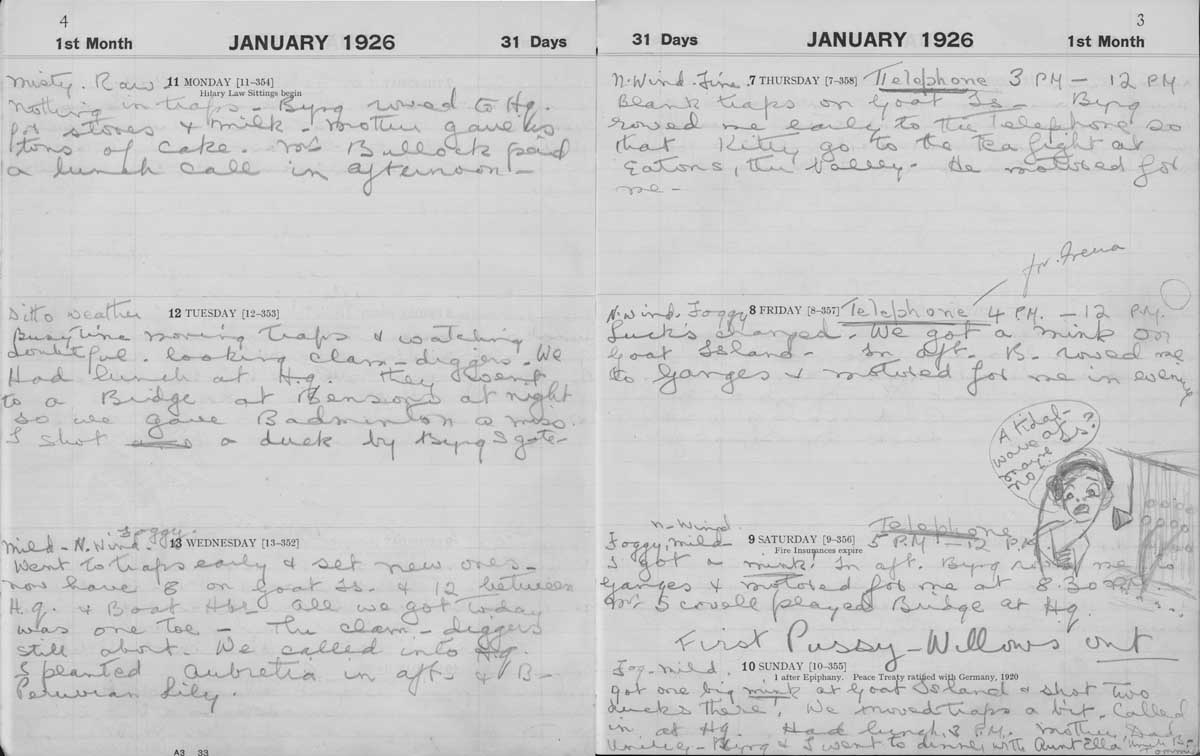 4
1st Month JANUARY 1926 31 Days
Misty. Raw 11 MONDAY [11–354]
Hilary Law Sittings begin
Nothing in traps – Byng rowed to Hq.
for stores & milk – mother gave us
tons of cake. Bullock paid
a lunch call in afternoon –
Ditto weather 12 TUESDAY [12–353]
Busy time moving traps & watching
doubtful-looking clam-diggers. We
Had lunch at Hq. They went
to a Bridge at Bensons at night
so we gave Badminton a miss.
I shot a duck by Byng's gate–
Foggy.
Mild – N. Wind. 13 WEDNESDAY [13–352]
Went to traps early & set new ones –
now have 8 on Goat Is. & 12 between
H.q. & Boat Hse All we got today
was one toe – The clam-diggers
still about. We called into Hq.
I planted Aubretia in aft. & B–
Peruvian Lily.
A3 33
3
31 Days JANUARY 1926 1st Month
N. Wind. Fine. 7 THURSDAY [7–358] Telephone 3 PM – 12 PM
Blank traps on Goat Is – Byng
rowed me early to the Telephone so
that Kitty go to the Tea fight at
Eatons, the Valley. He motored for
me –
for Irena
N. Wind. Foggy 8 FRIDAY [8–357] Telephone 4 PM. – 12 PM.
Luck's changed. We got a mink on
Goat Island – In aft. B. rowed me
to Ganges & motored for me in evening
A tidal-
wave at
no!
N–Wind. Telephone
Foggy, mild 9 SATURDAY [9–356] 5 P.M – 12 P.M
Fire Insurances expire
I got a mink! In aft. Byng rowed me to
Ganges & motored for me at 8.30
Scovell played Bridge at Hq.
First Pussy-Willows out
Fog – mild. 10 SUNDAY [10–355]
1 after Epiphany. Peace Treaty ratified with Germany, 1920
Got one big mink at Goat Island & shot two
ducks there! We moved traps a bit. Called
in at Hq. Had lunch, 3 P.M. – mother, Dad,
Byng & I went to dinner with Aunt